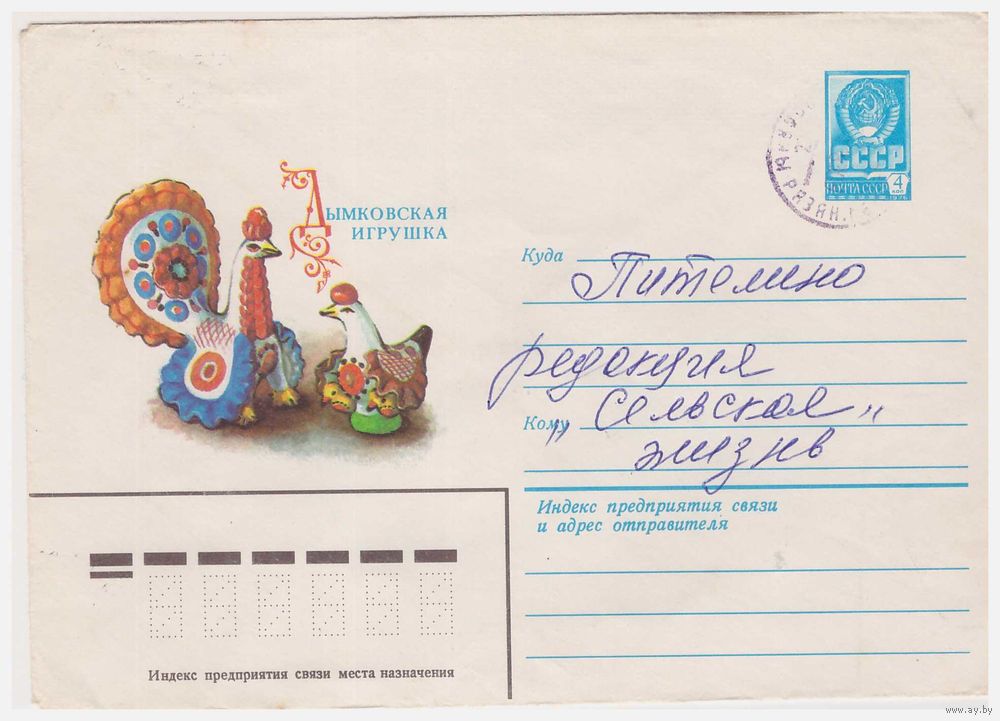 СССР
ПОЧТА СССР 4 КОП
1976
ДЫМКОВСКАЯ
ИГРУШКА
Куда Пителино
редакция
Кому „Сельская"
жизнь
Индекс предприятия связи
и адрес отправителя
Индекс предприятия связи места назначения
www.ay.by